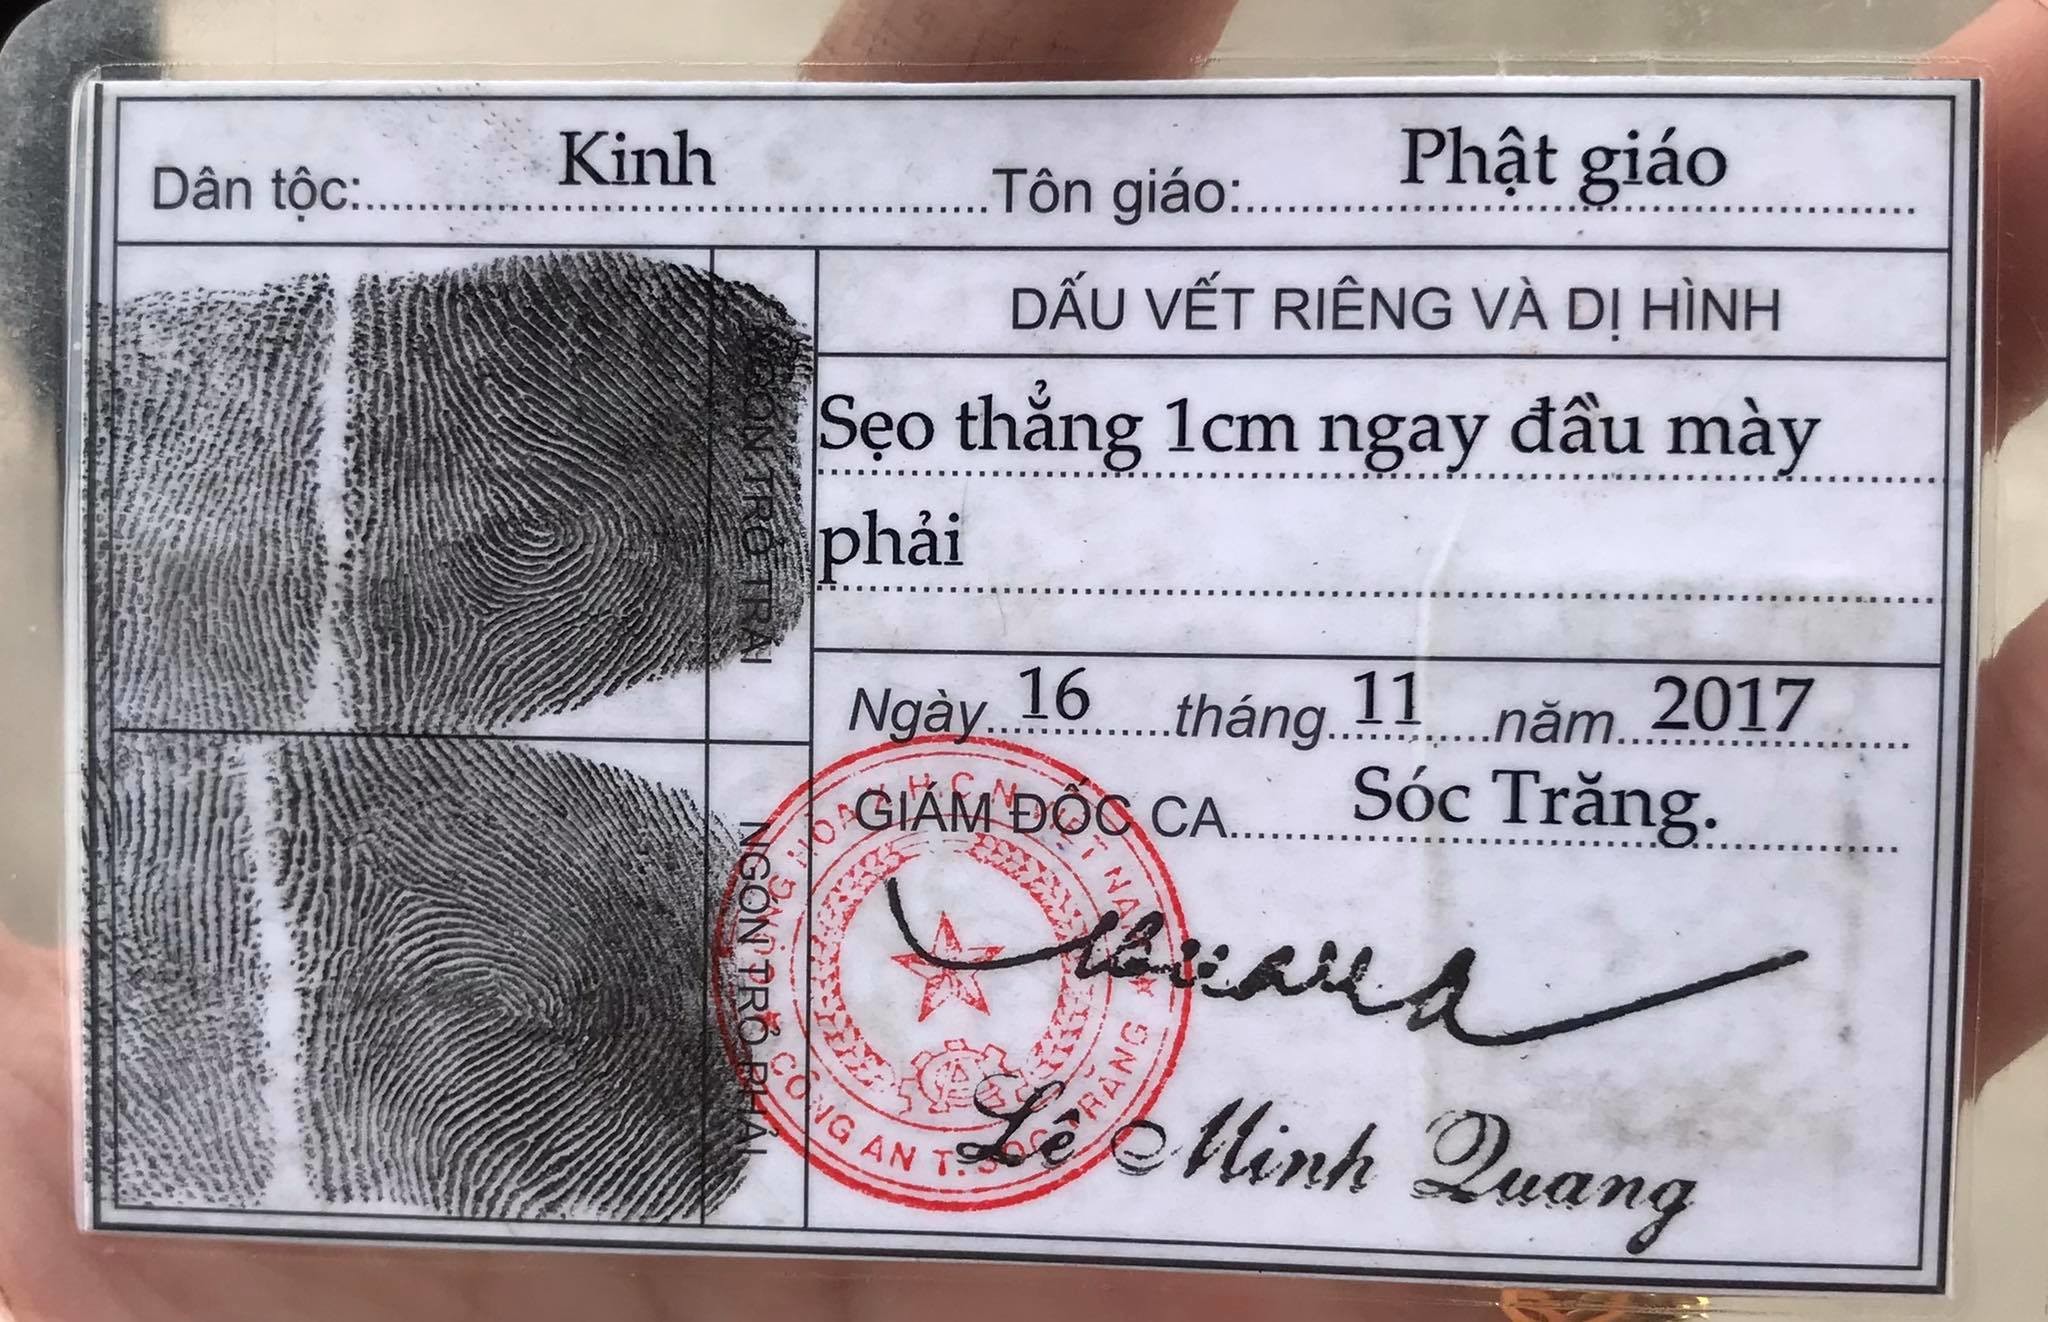 Dân tộc: Kinh Tôn giáo: Phật giáo
NGÓN TRỎ TRÁI
DẤU VẾT RIÊNG VÀ DỊ HÌNH
Sẹo thẳng 1cm ngay đầu mày
phải
Ngày 16 tháng 11 năm 2017
GIÁM ĐỐC CA Sóc Trăng.
NGÓN TRỎ PHẢI
CỘNG HOÀ X.H.C.N VIỆT NAM
CÔNG AN T. SÓC TRĂNG
Lê Minh Quang